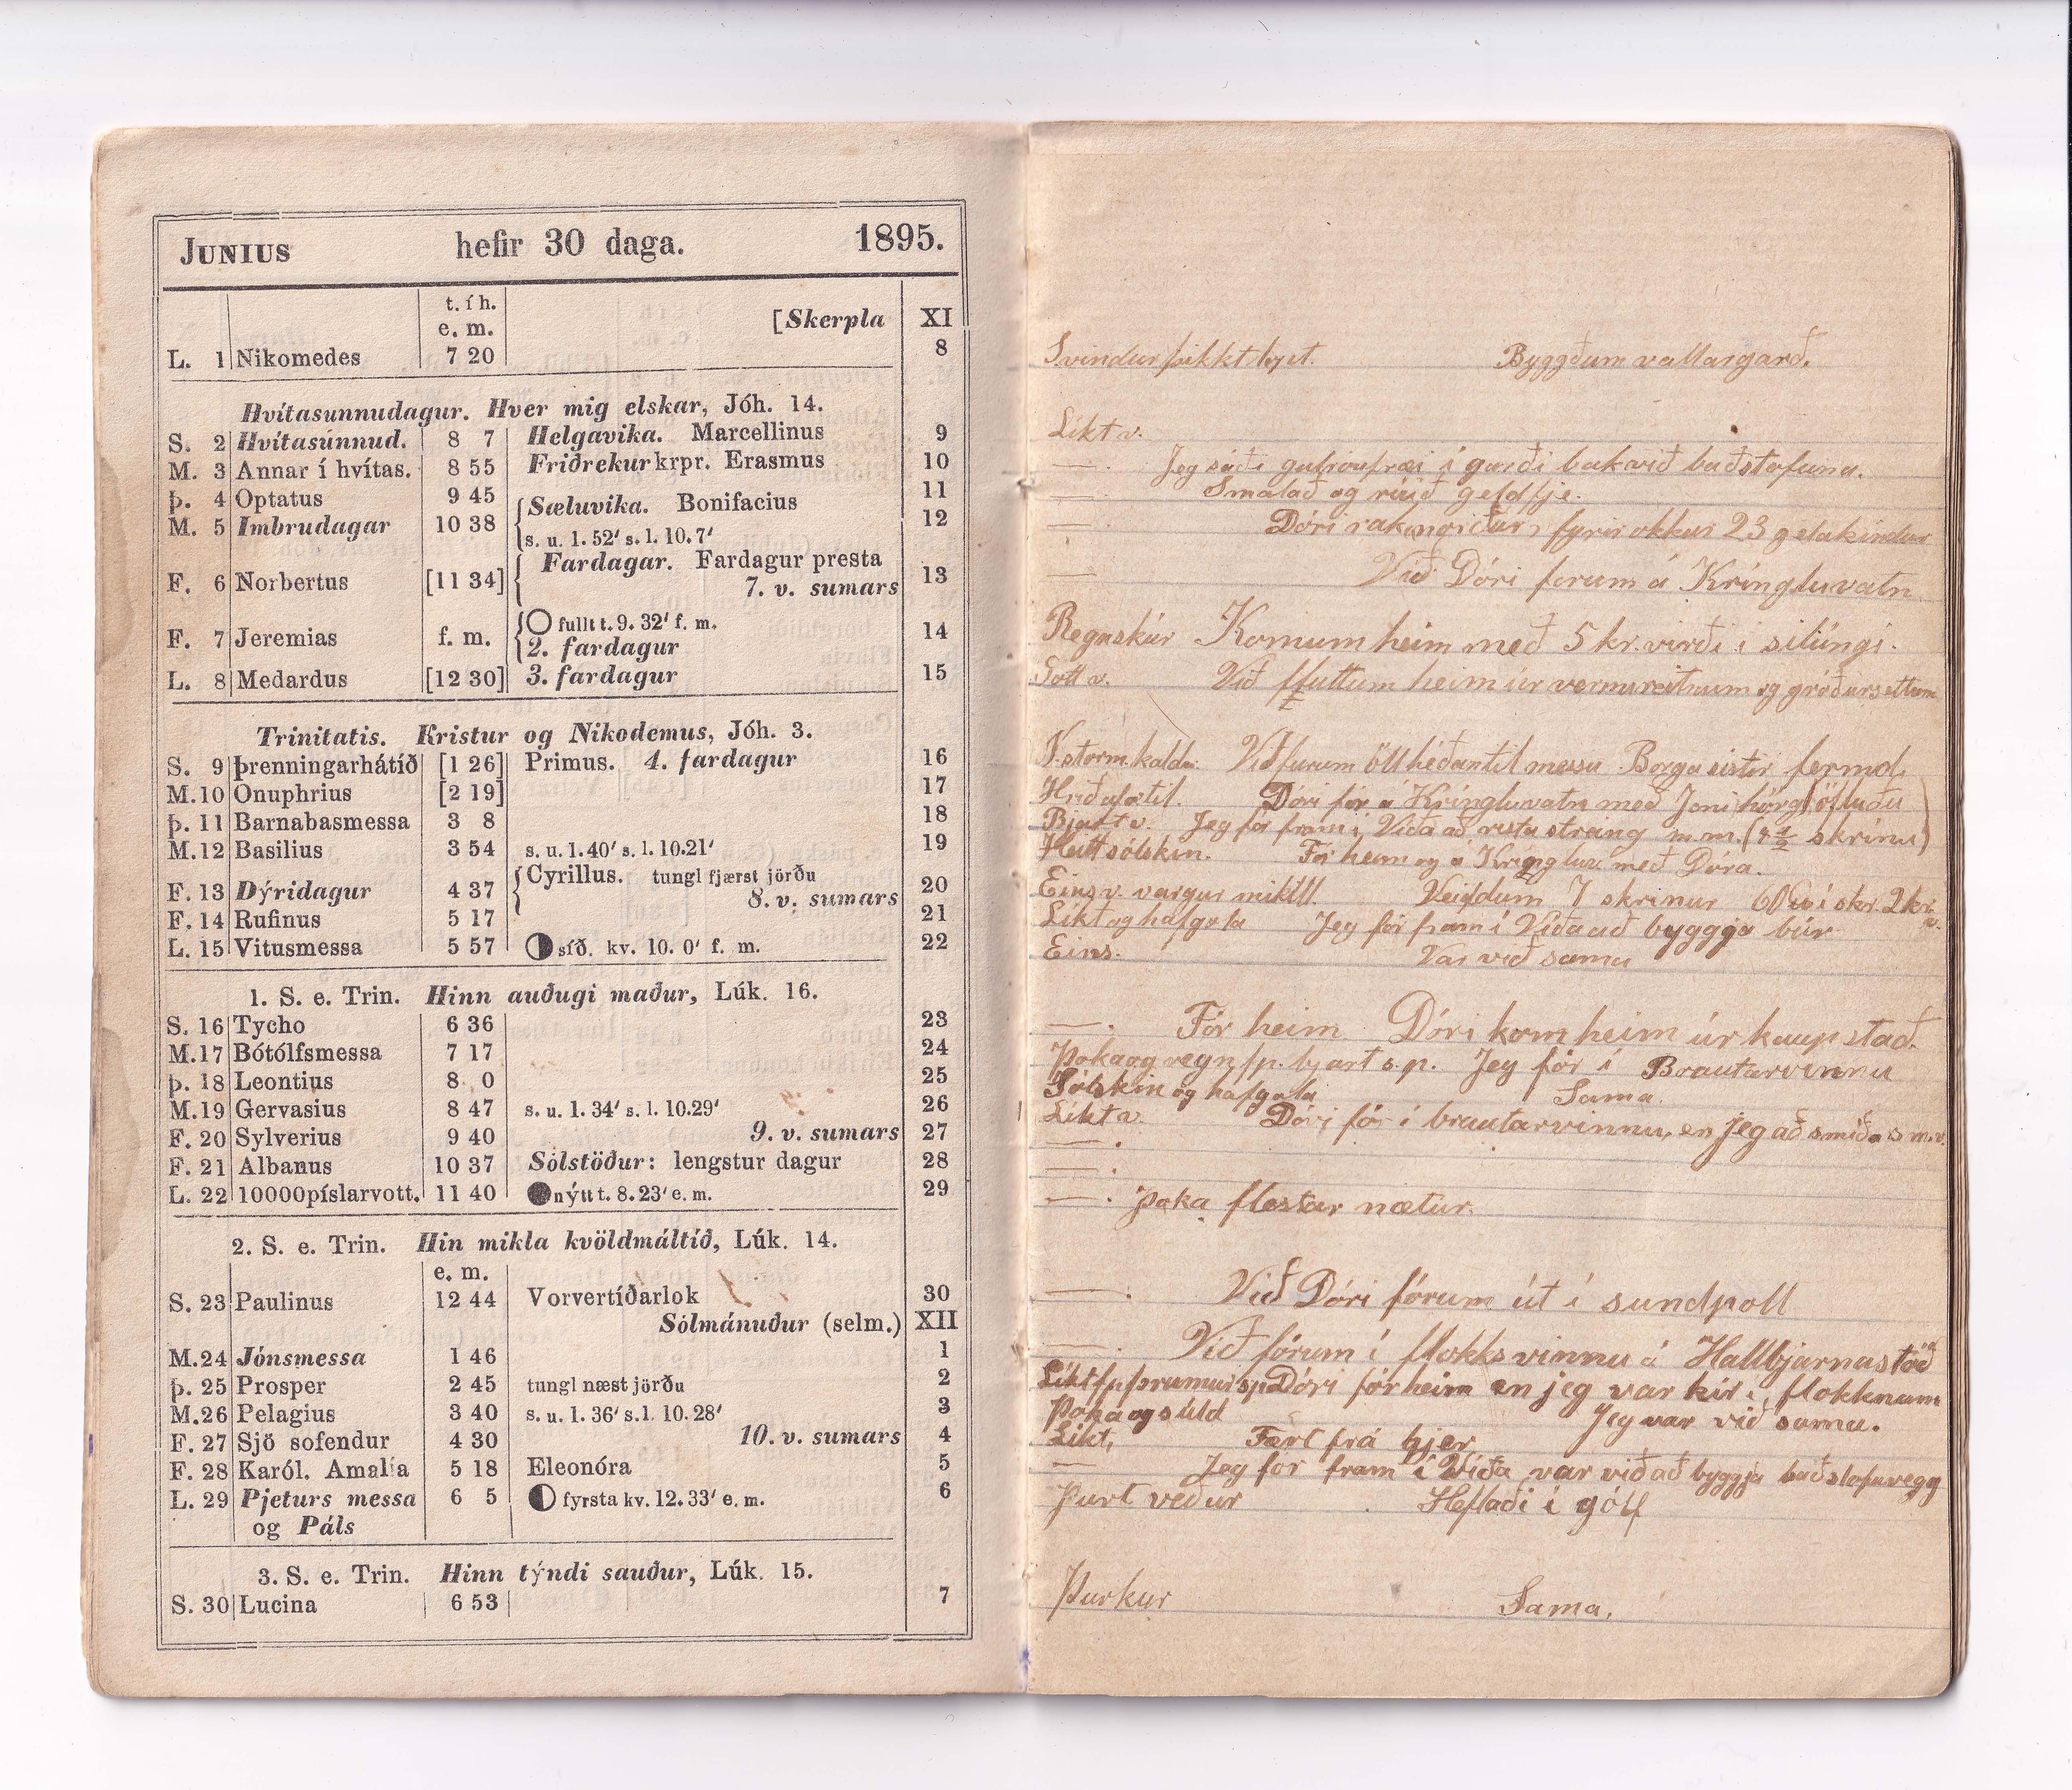 JUNIUS hefir 30 daga. 1895.
t. í h.
e. m. [Skerpla XI
L. 1 Nikomedes 7 20 8
Hvítasunnudagur. Hver mig elskar, Jóh. 14.
S. 2 Hvítasúnnud. 8 7 Helgavika. Marcellinus 9
M. 3 Annar í hvítas. 8 55 Friðrekur krpr. Erasmus 10
Þ. 4 Optatus 9 45 Sæluvika. Bonifacius 11
M. 5 Imbrudagar 10 38 s. u. 1. 52′ s. l. 10. 7′ 12
Fardagar. Fardagur presta
F. 6 Norbertus [11 34] 7. v. sumars 13
fullt t. 9. 32′ f. m.
F. 7 Jeremias f. m. 2. fardagur 14
L. 8 Medardus [12 30] 3. fardagur 15
Trinitatis. Kristur og Nikodemus, Jóh. 3.
S. 9 Þrenningarhátíð [1 26] Primus. 4. fardagur 16
M. 10 Onuphrius [2 19] 17
Þ. 11 Barnabasmessa 3 8 18
M. 12 Basilius 3 54 s. u. 1. 40′ s. l. 10.21′ 19
Cyrillus. tungl fjærst jörðu
F. 13 Dýridagur 4 37 8. v. sumars 20
F. 14 Rufinus 5 17 21
L. 15 Vitusmessa 5 57 síð. kv. 10. 0′ f. m. 22
1. S. e. Trin. Hinn auðugi maður, Lúk. 16.
S. 16 Tycho 6 36 23
M. 17 Bótólfsmessa 7 17 24
Þ. 18 Leontius 8 0 25
M. 19 Gervasius 8 47 s. u. 1. 34′ s. l. 10.29′ 26
F. 20 Sylverius 9 40 9. v. sumars 27
F. 21 Albanus 10 37 Sólstöður: lengstur dagur 28
L. 22 10000 píslarvott. 11 40 nýtt t. 8. 23′ e. m. 29
2. S. e. Trin. Hin mikla kvöldmáltíð, Lúk. 14.
e. m.
S. 23 Paulinus 12 44 Vorvertíðarlok 30
Sólmánuður (selm.) XII
M. 24 Jónsmessa 1 46 1
Þ. 25 Prosper 2 45 tungl næst jörðu 2
M. 26 Pelagius 3 40 s. u. 1. 36′ s. l. 10. 28′ 3
F. 27 Sjö sofendur 4 30 10. v. sumars 4
F. 28 Karól. Amalía 5 18 Eleonóra 5
L. 29 Pjeturs messa 6 5 fyrsta kv. 12. 33′ e. m. 6
og Páls
3. S. e. Trin. Hinn týndi sauður, Lúk. 15.
S. 30 Lucina 6 53 7
Svindur þikkt loft. Byggðum vallargarð.
Líkt v.
—. Jeg sáði gulrófufræi í garði bakvið baðstofuna.
—. Smalað og rúið geldfje.
— Dóri rak fyrir okkur 23 geldkindur
— Við Dóri forum á Kríngluvatn
Regnskúr Komum heim með 5 kr. virði i silúngi.
Gott v. Við fluttum heim úr vermireitnum og gróðursettum
N. storm. kaldr. Við furum öll héðan til messu Borga sistir fermd,
Dóri fór á Kríngluvatn með Joni
Bjart v. Jeg fór fram í Víða að rista streing m.m. (4 1/2 skrínu)
Heitt sólskin. Fór heim og á Kríngluv með Dóra.
Eins v. vargur mikill. Veiddum 7 skrínur 60 í skr. 2 kr.
Líkt og hafgola Jeg fór fram í Víða að byggja búr
Eins. Var við sama
—. Fór heim. Dóri kom heim úr kaupstað.
Þoka og regn fp. bjart s.p. Jeg fór í Brautarvinnu
Sólskin og hafgola Sama.
Líkt v. Dóri fór í brautarvinnu, en jeg að smíða s m.v.
—.
—.
—. Þoka flestar nætur.
—. Við Dóri fórum út í sundpoll
—. Við fórum í flokksvinnu á Hallbjarnastöð
Líkt fp þrumur sp Dóri fór heim en jeg var kir í flokknum
Þoka og súld Jeg var við sama.
Líkt, Fært frá hjer
— Jeg fór fram í Víða var við að byggja baðstofuvegg
Þurt veður Heflaði í gólf
Þurkur Sama.